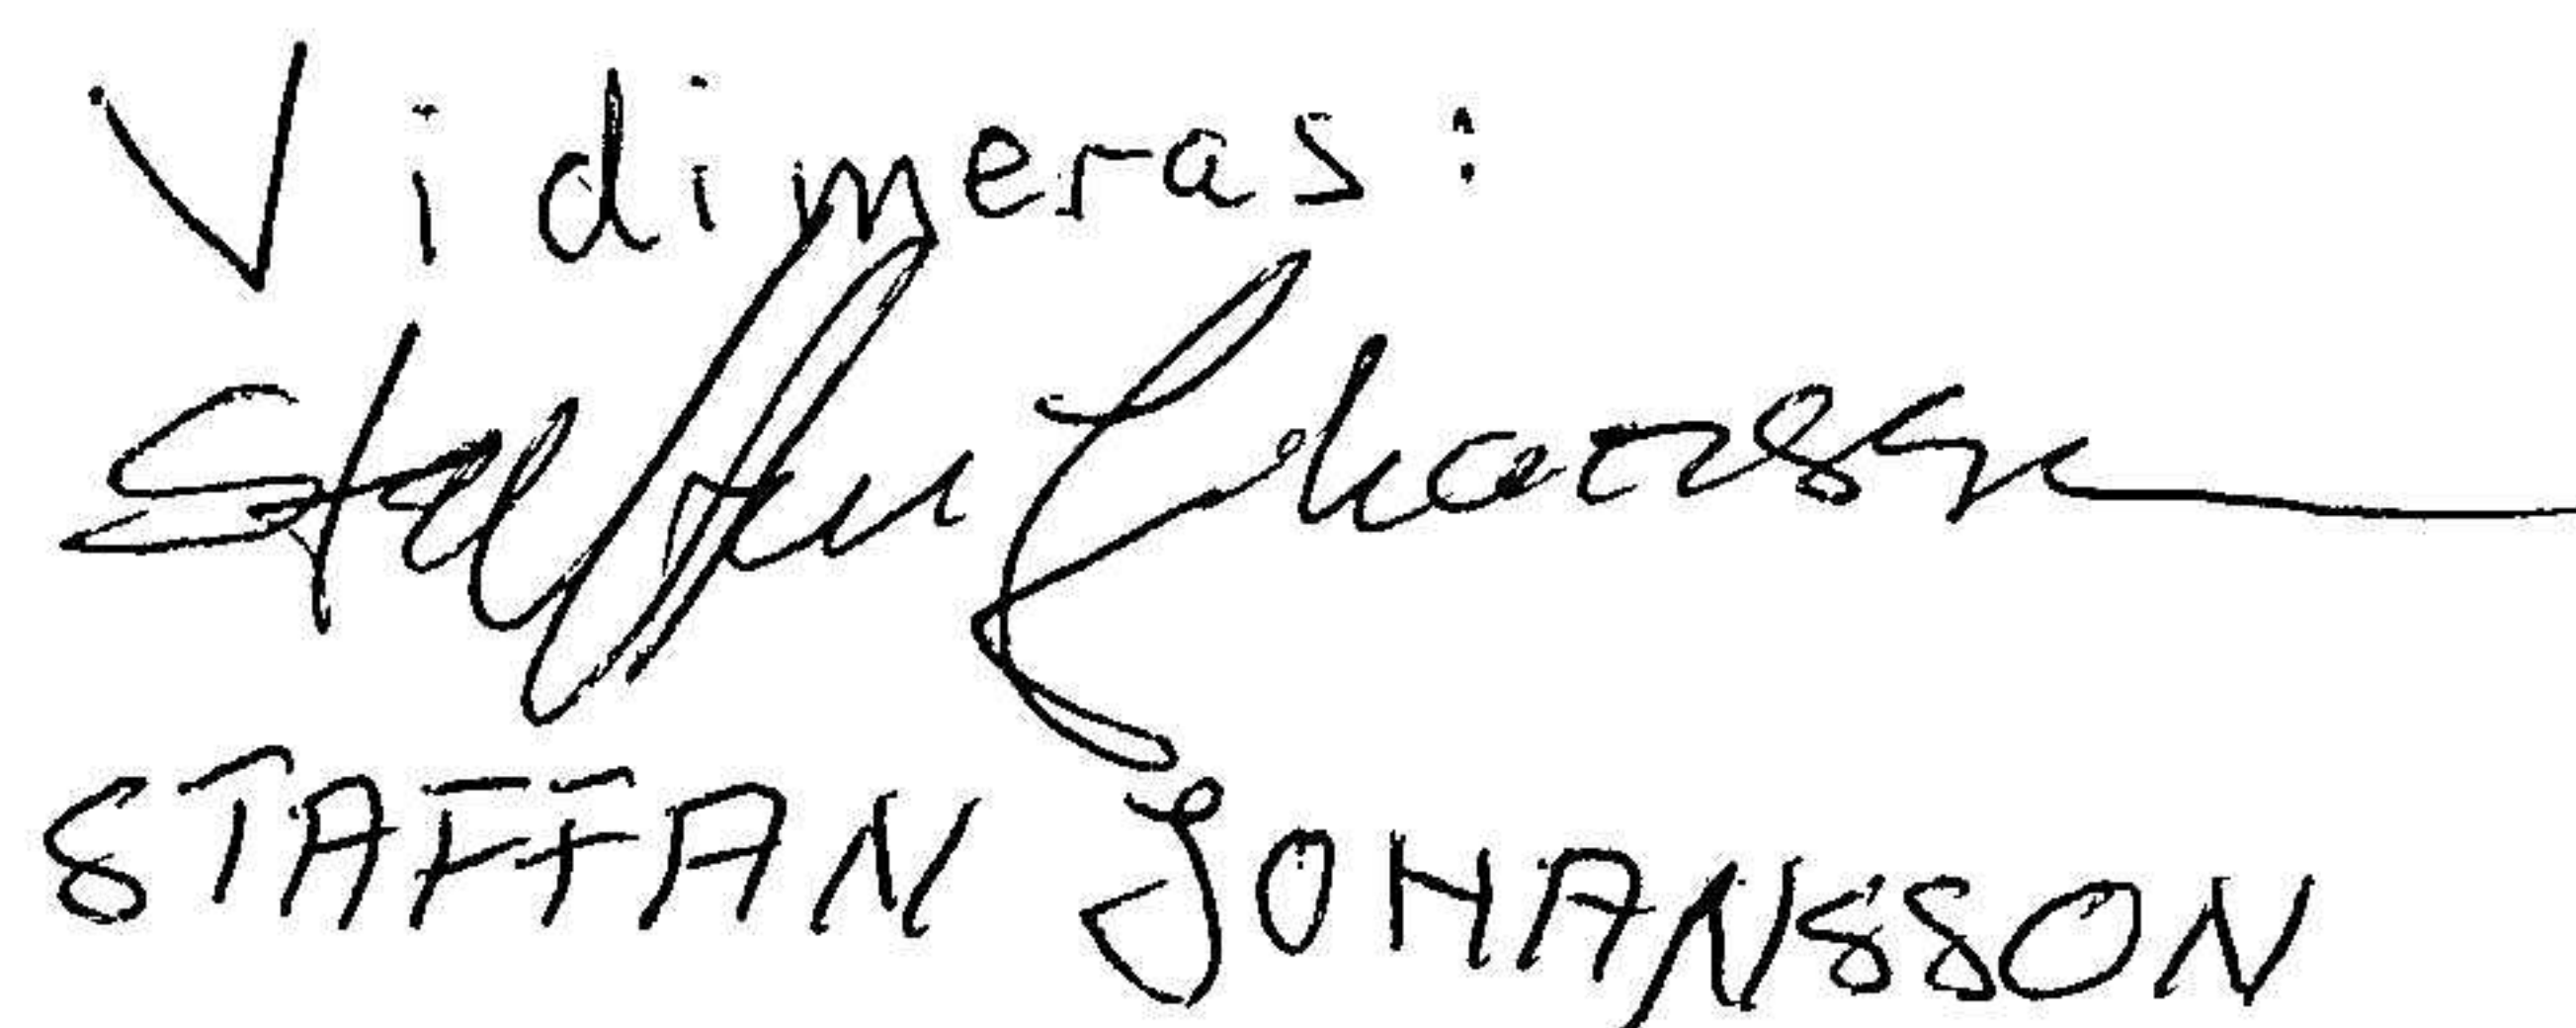 Vidimeras:
Staffan Johansson
STAFFAN JOHANSSON